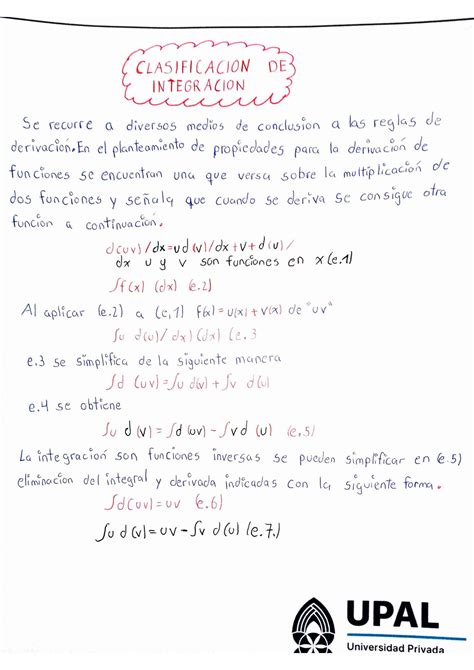 CLASIFICACION DE
INTEGRACION
Se recurre a diversos medios de conclusion a las reglas de
derivación. En el planteamiento de propiedades para la derivación de
funciones se encuentran una que versa sobre la multiplicación de
dos funciones y señala que cuando se deriva se consigue otra
función a continuación.
d(uv)/dx=ud(v)/dx+v+d(u)/
dx u y v son funciones en x(e.1)
∫f(x) (dx) (e.2)
Al aplicar (e.2) a (e,1) f(x)=u(x)+v(x) de "uv"
∫u d(u)/dx)(dx) (e.3
e.3 se simplifica de la siguiente manera
∫d (uv)=∫u d(v)+∫v d(u)
e.4 se obtiene
∫u d(v)=∫d(uv)-∫vd (u) (e,5/
La integración son funciones inversas se pueden simplificar en (e.5)
eliminación del integral y derivada indicadas con la siguiente forma.
∫d(uv)=uv (e.6)
∫u d(v)=uv-∫v d(u) (e.7.)
UPAL
Universidad Privada